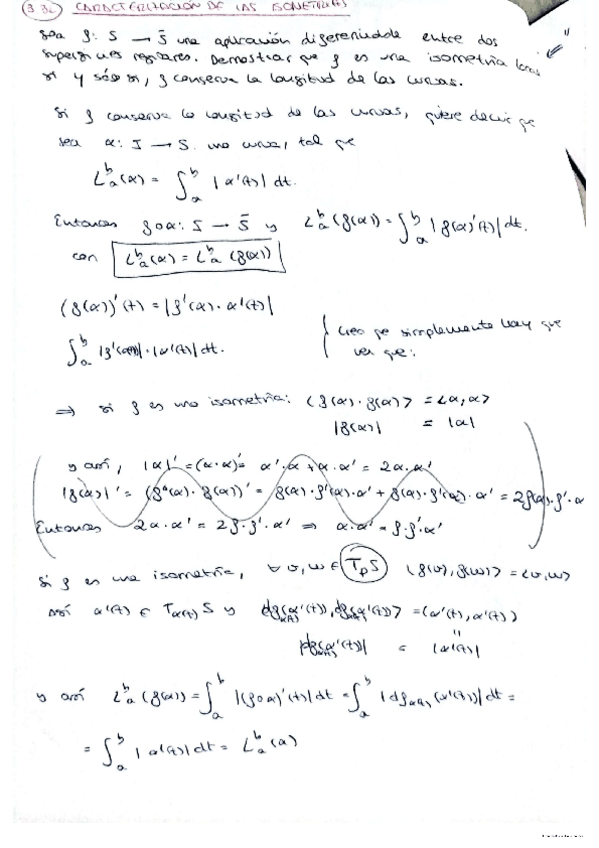 3.32 CARACTERIZACIÓN DE LAS ISOMETRÍAS
Sea f: S → S̄ una aplicación diferenciable entre dos
superficies regulares. Demostrar que f es una isometría local
si y sólo si, f conserva la longitud de las curvas.
Si f conserva la longitud de las curvas, quiere decir que
sea α: I → S una curva, tal que
L_a^b(α) = ∫_a^b |α'(t)| dt.
Entonces f∘α: I → S̄ y L_a^b(f(α)) = ∫_a^b |f(α)'(t)| dt.
con L_a^b(α) = L_a^b(f(α))
(f(α))'(t) = |f'(α)·α'(t)|
∫_a^b |f'(α(t))|·|α'(t)| dt.
Creo que simplemente hay que
ver que:
⇒ si f es una isometría: <f(α)·f(α)> = <α,α>
|f(α)| = |α|
y así, |α|' = (α·α)' = α'·α + α·α' = 2α·α'
|f(α)|' = (f(α)·f(α))' = f(α)·f'(α)·α' + f(α)·f'(α)·α' = 2f(α)·f'·α
Entonces 2α·α' = 2f·f'·α' ⇒ α·α' = f·f'·α'
Si f es una isometría, ∀ v,w ∈ T_pS <f(v),f(w)> = <v,w>
así α'(t) ∈ T_α(t)S y <df_α(t)(α'(t)), df_α(t)(α'(t))> = <α'(t), α'(t)>
|df_α(t)(α'(t))| = |α'(t)|
y así L_a^b(f(α)) = ∫_a^b |(f∘α)'(t)| dt = ∫_a^b |df_α(t)(α'(t))| dt =
= ∫_a^b |α'(t)| dt = L_a^b(α)